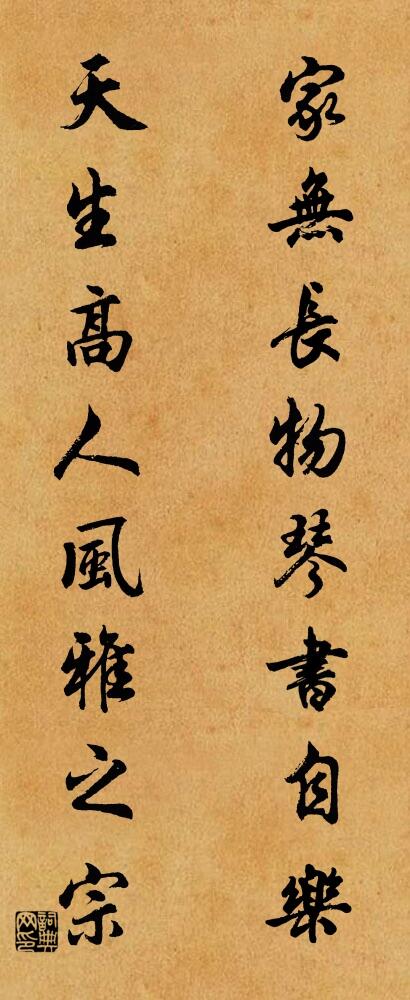 家無長物琴書自樂
天生高人風雅之宗
詞典網印